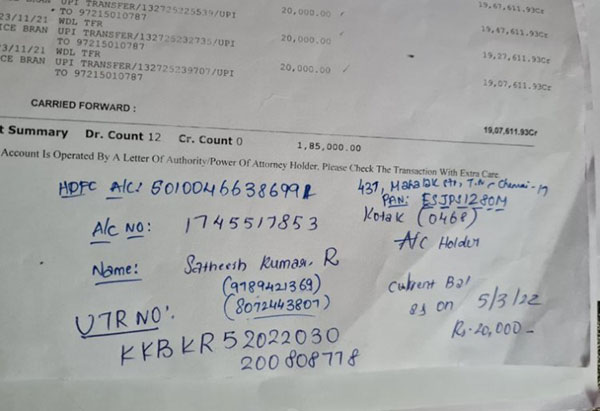 UPI TRANSFER/132725225539/UPI 20,000.00 ✓ 19,67,611.93Cr
TO 97215010787
23/11/21 WDL TFR
ICE BRAN UPI TRANSFER/132725232735/UPI 20,000.00 ✓ 19,47,611.93Cr
TO 97215010787
23/11/21 WDL TFR 19,27,611.93Cr
CE BRAN UPI TRANSFER/132725239707/UPI 20,000.00 ✓
TO 97215010787 19,07,611.93Cr
CARRIED FORWARD :
19,07,611.93Cr
t Summary Dr. Count 12 Cr. Count 0 1,85,000.00
Account Is Operated By A Letter Of Authority/Power Of Attorney Holder, Please Check The Transaction With Extra Care.
HDFC A/C:
437, Chennai - 17
PAN: ESJPS1280M
A/C NO: 1745517853
Kotak (0468)
A/C Holder
Name: Satheesh Kumar. R
(9789421369)
(8072443807)
Current Bal
as on 5/3/22
Rs. 20,000 -
UTR NO:
KKBKR52022030
200808778